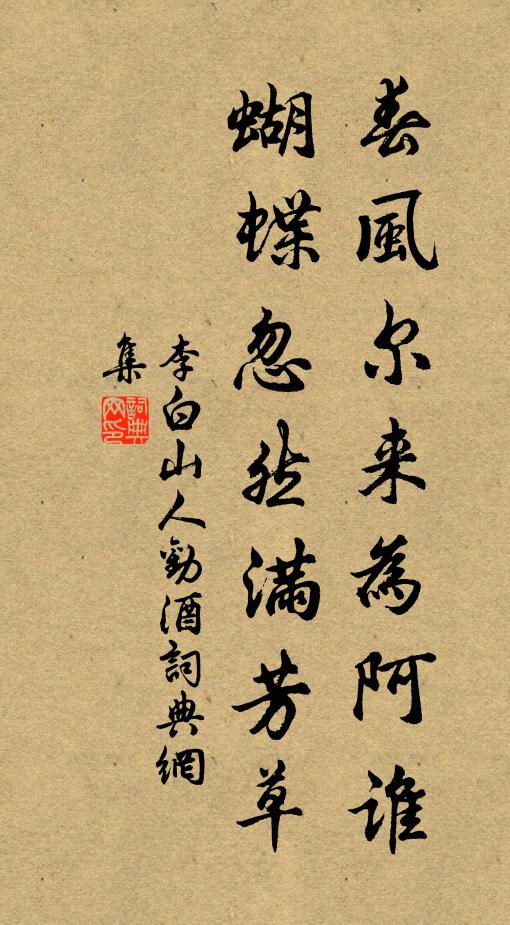 春風尔来為阿誰
蝴蝶忽然滿芳草
李白山人勸酒詞典網
集
詞典網印